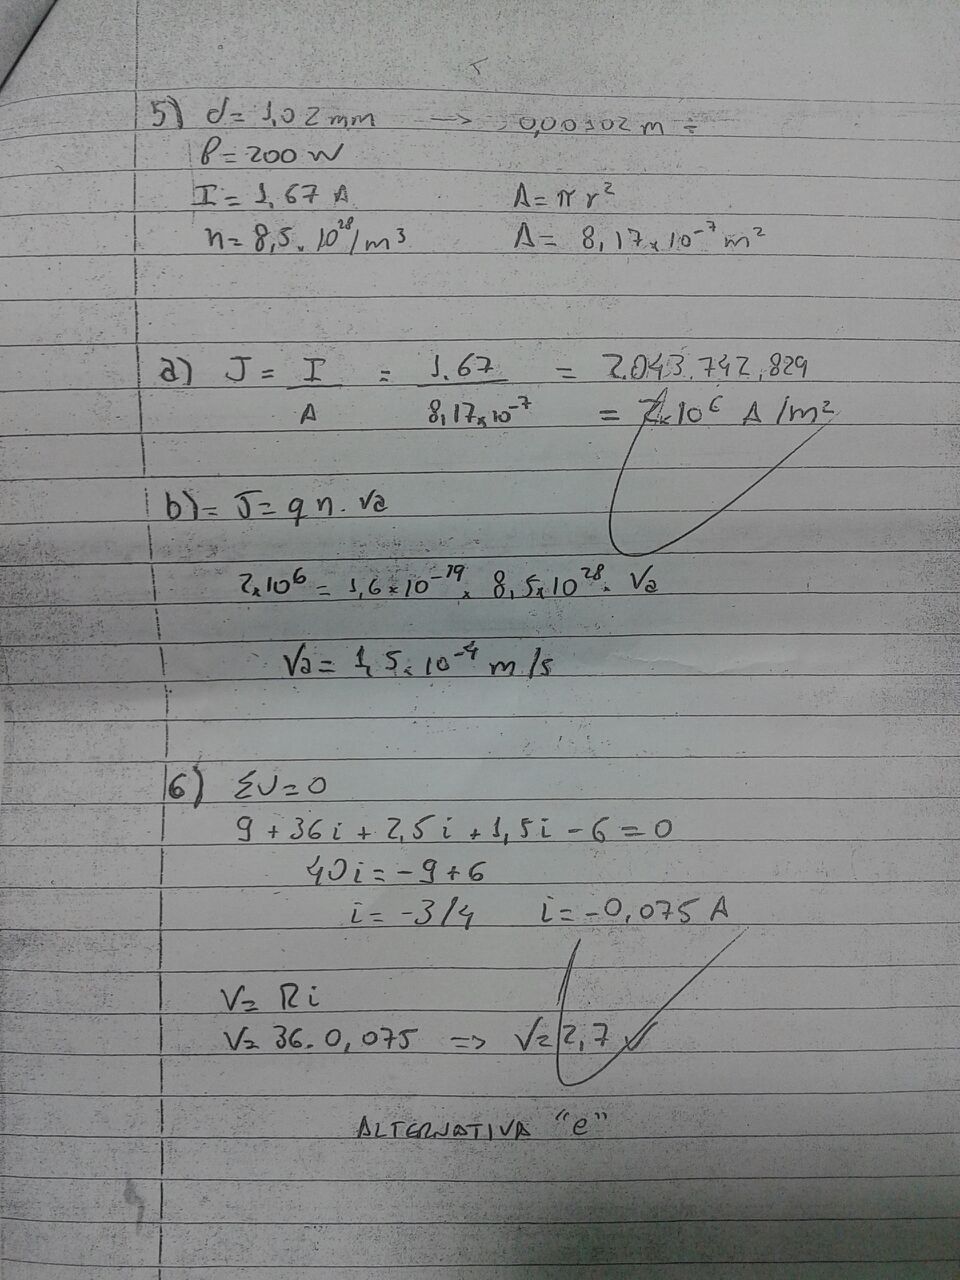 5) d = 1,02 mm → 0,00102 m =
P = 200 W
I = 1,67 A A = π r²
n = 8,5 . 10²⁸/m³ A = 8,17 x 10⁻⁷ m²
a) J = I / A = 1.67 / 8,17 x 10⁻⁷ = 2.043.742,829
= 2 x 10⁶ A/m²
b) = J = q n . Va
2 x 10⁶ = 1,6 x 10⁻¹⁹ x 8,5 x 10²⁸ . Va
Va = 1,5 . 10⁻⁴ m/s
6) ΣU = 0
9 + 36i + 2,5i + 1,5i - 6 = 0
40i = -9 + 6
i = -3/4 i = -0,075 A
V = Ri
V = 36 . 0,075 => V = 2,7 V
ALTERNATIVA "e"